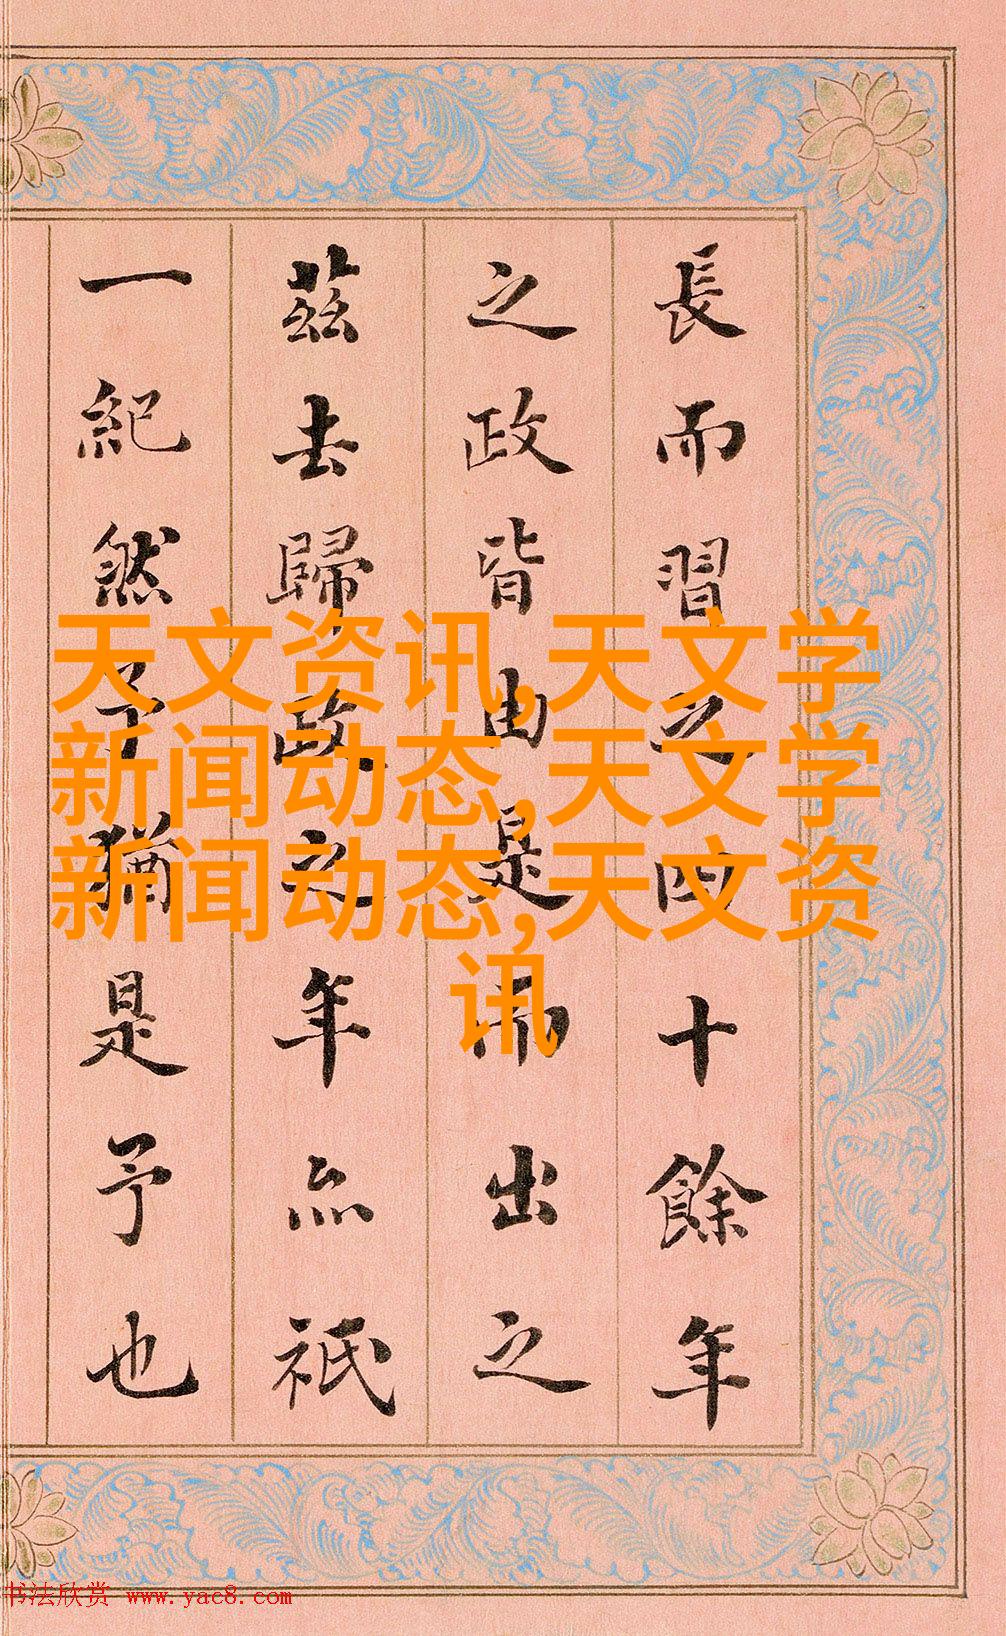 長而習之四十餘年
之政皆由是而出之
茲去歸政之年亦祇
一紀然予猶是予也
天文资讯,天文学
新闻动态,天文学
新闻动态,天文资
讯
书法欣赏 www.yac8.com